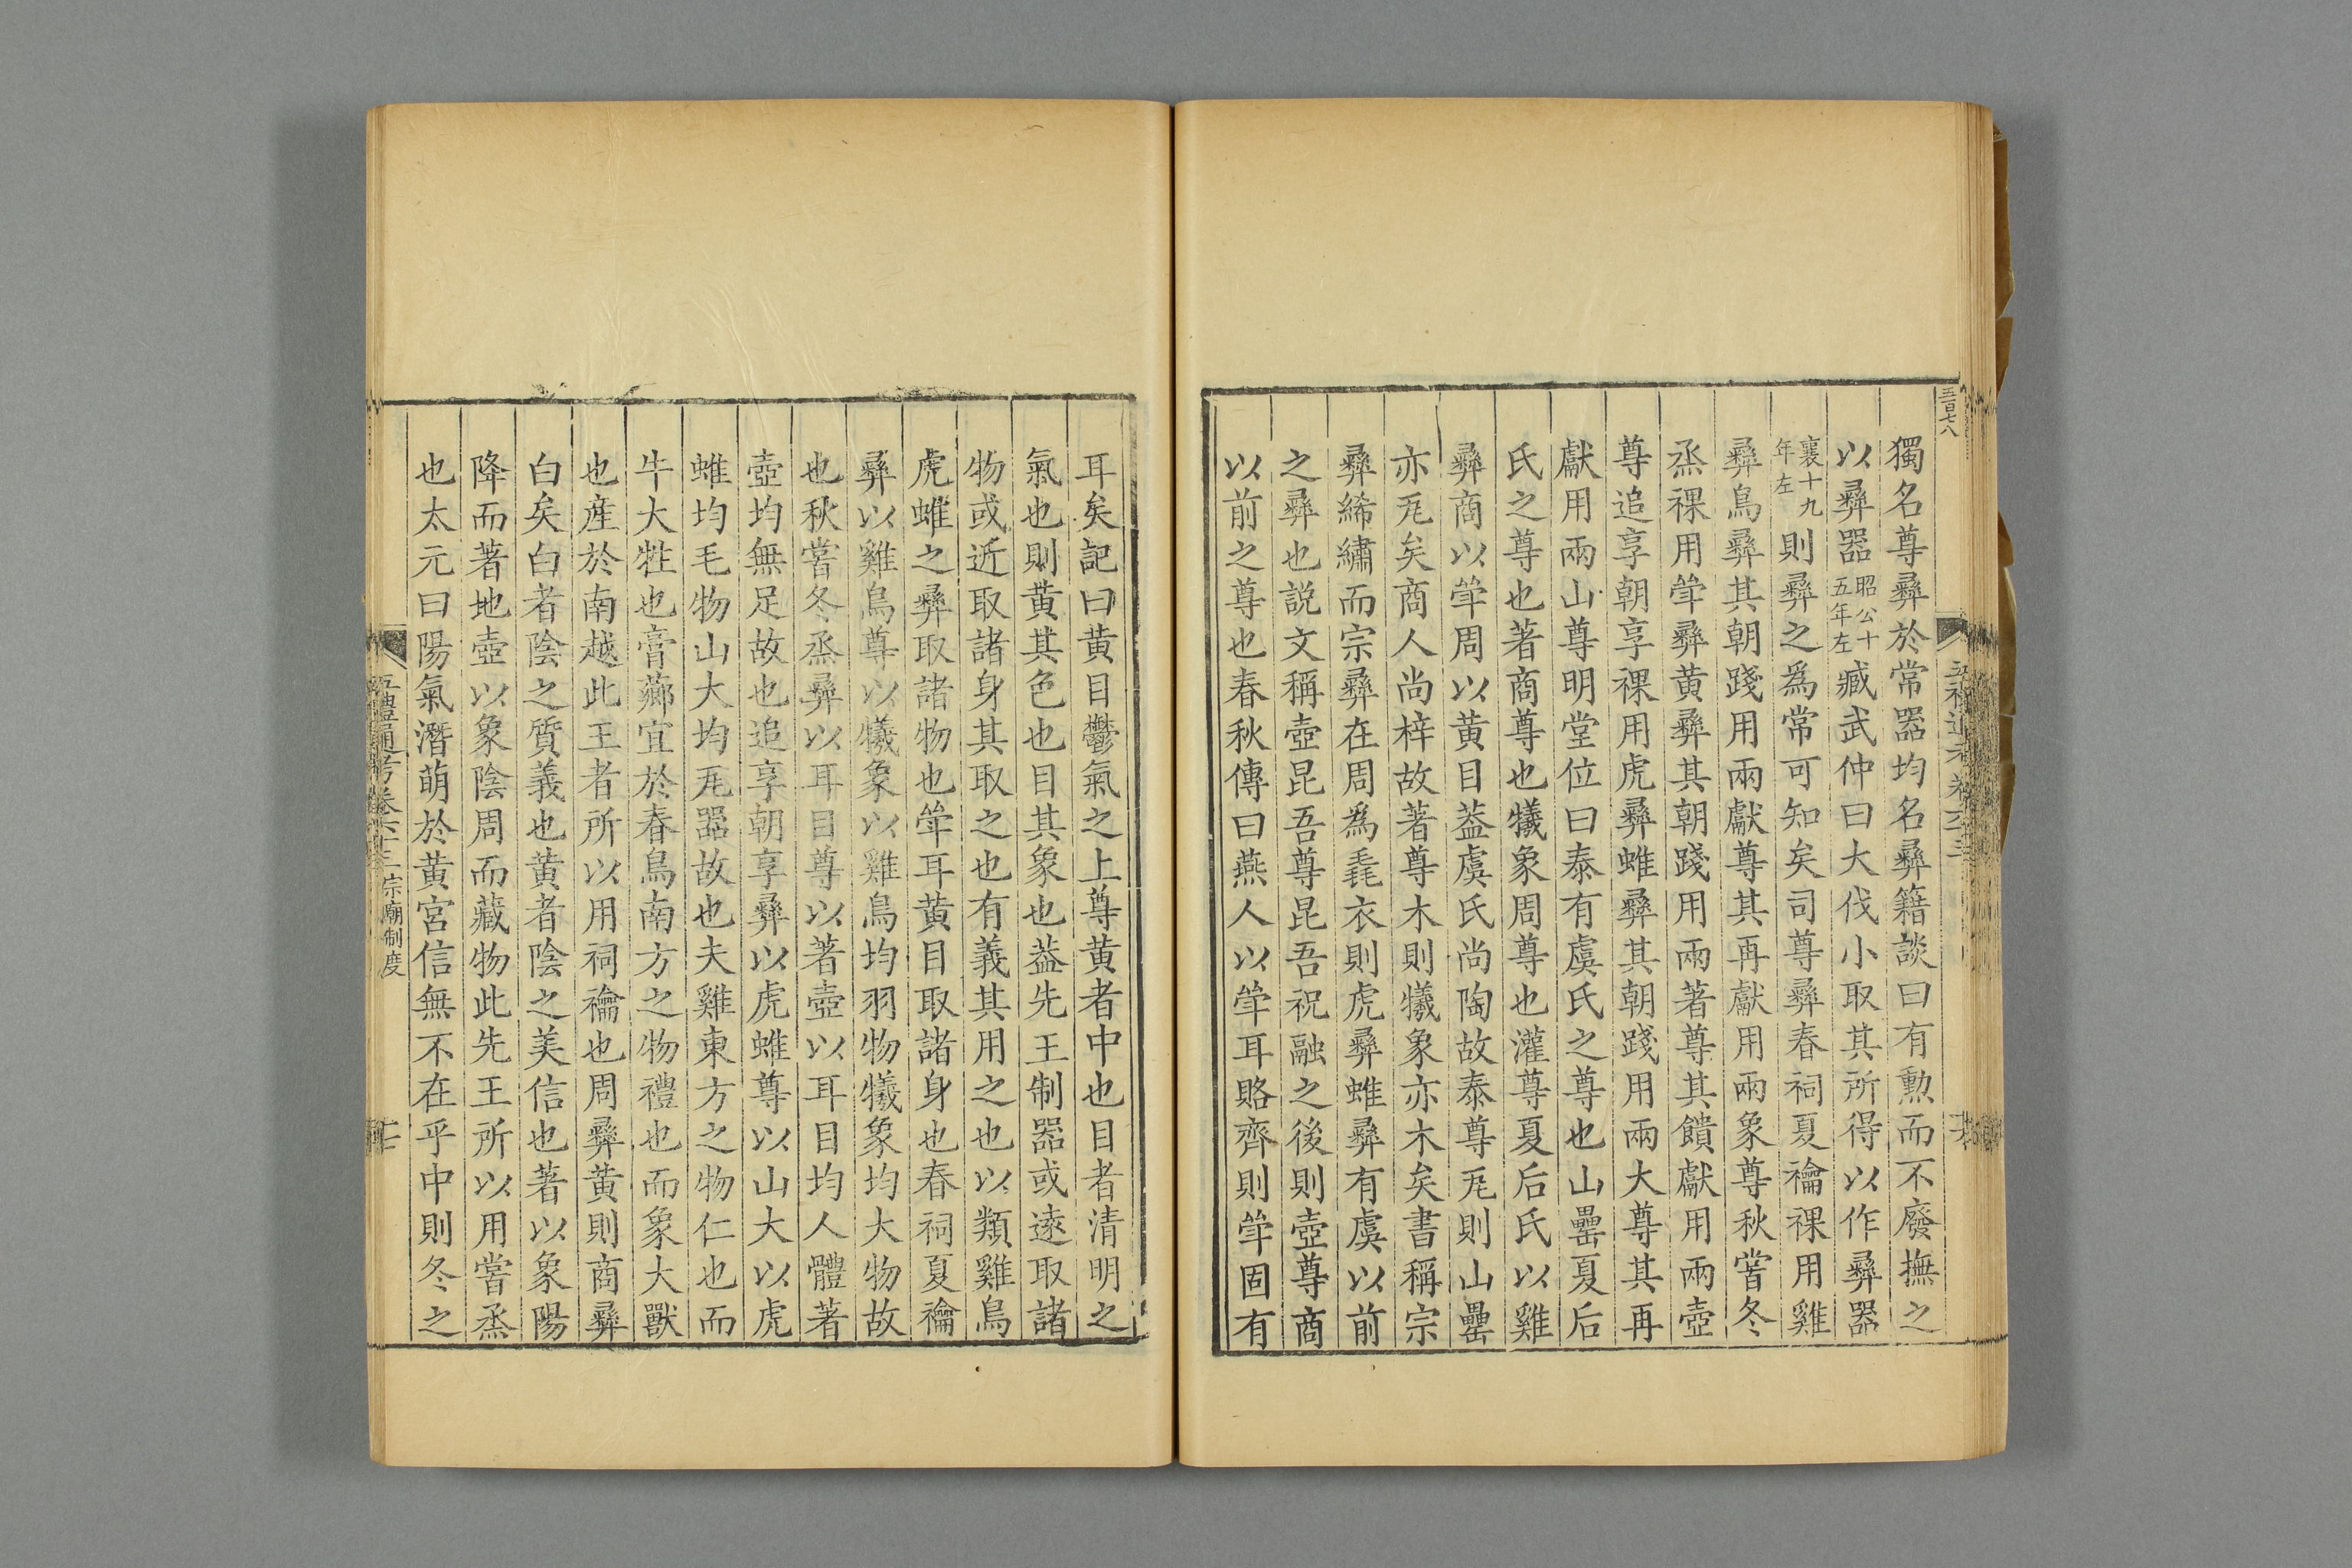 五百七八
獨名尊彝於常器均名彝籍談曰有勳而不廢撫之
以彝器昭公十五年左臧武仲曰大伐小取其所得以作彝器
襄十九年左則彝之為常可知矣司尊彝春祠夏禴祼用雞
彝鳥彝其朝踐用兩獻尊其再獻用兩象尊秋嘗冬
烝祼用斝彝黃彝其朝踐用兩著尊其饋獻用兩壺
尊追享朝享祼用虎彝蜼彝其朝踐用兩大尊其再
獻用兩山尊明堂位曰泰有虞氏之尊也山罍夏后
氏之尊也著商尊也犧象周尊也灌尊夏后氏以雞
彝商以斝周以黃目蓋虞氏尚陶故泰尊瓦則山罍
亦瓦矣商人尚梓故著尊木則犧象亦木矣書稱宗
彝絺繡而宗彝在周為毳衣則虎彝蜼彝有虞以前
之彝也說文稱壺昆吾尊昆吾祝融之後則壺尊商
以前之尊也春秋傳曰燕人以斝耳賂齊則斝固有
耳矣記曰黃目鬱氣之上尊黃者中也目者清明之
氣也則黃其色也目其象也蓋先王制器或遠取諸
物或近取諸身其取之也有義其用之也以類雞鳥
虎蜼之彝取諸物也斝耳黃目取諸身也春祠夏禴
彝以雞鳥尊以犧象以雞鳥均羽物犧象均大物故
也秋嘗冬烝彝以耳目尊以著壺以耳目均人體著
壺均無足故也追享朝享彝以虎蜼尊以山大以虎
蜼均毛物山大均瓦器故也夫雞東方之物仁也而
牛大牲也膏薌宜於春鳥南方之物禮也而象大獸
也產於南越此王者所以用祠禴也周彝黃則商彝
白矣白者陰之質義也黃者陰之美信也著以象陽
降而著地壺以象陰周而藏物此先王所以用嘗烝
也太元曰陽氣潛萌於黃宮信無不在乎中則冬之
五禮通考卷六十三 宗廟制度